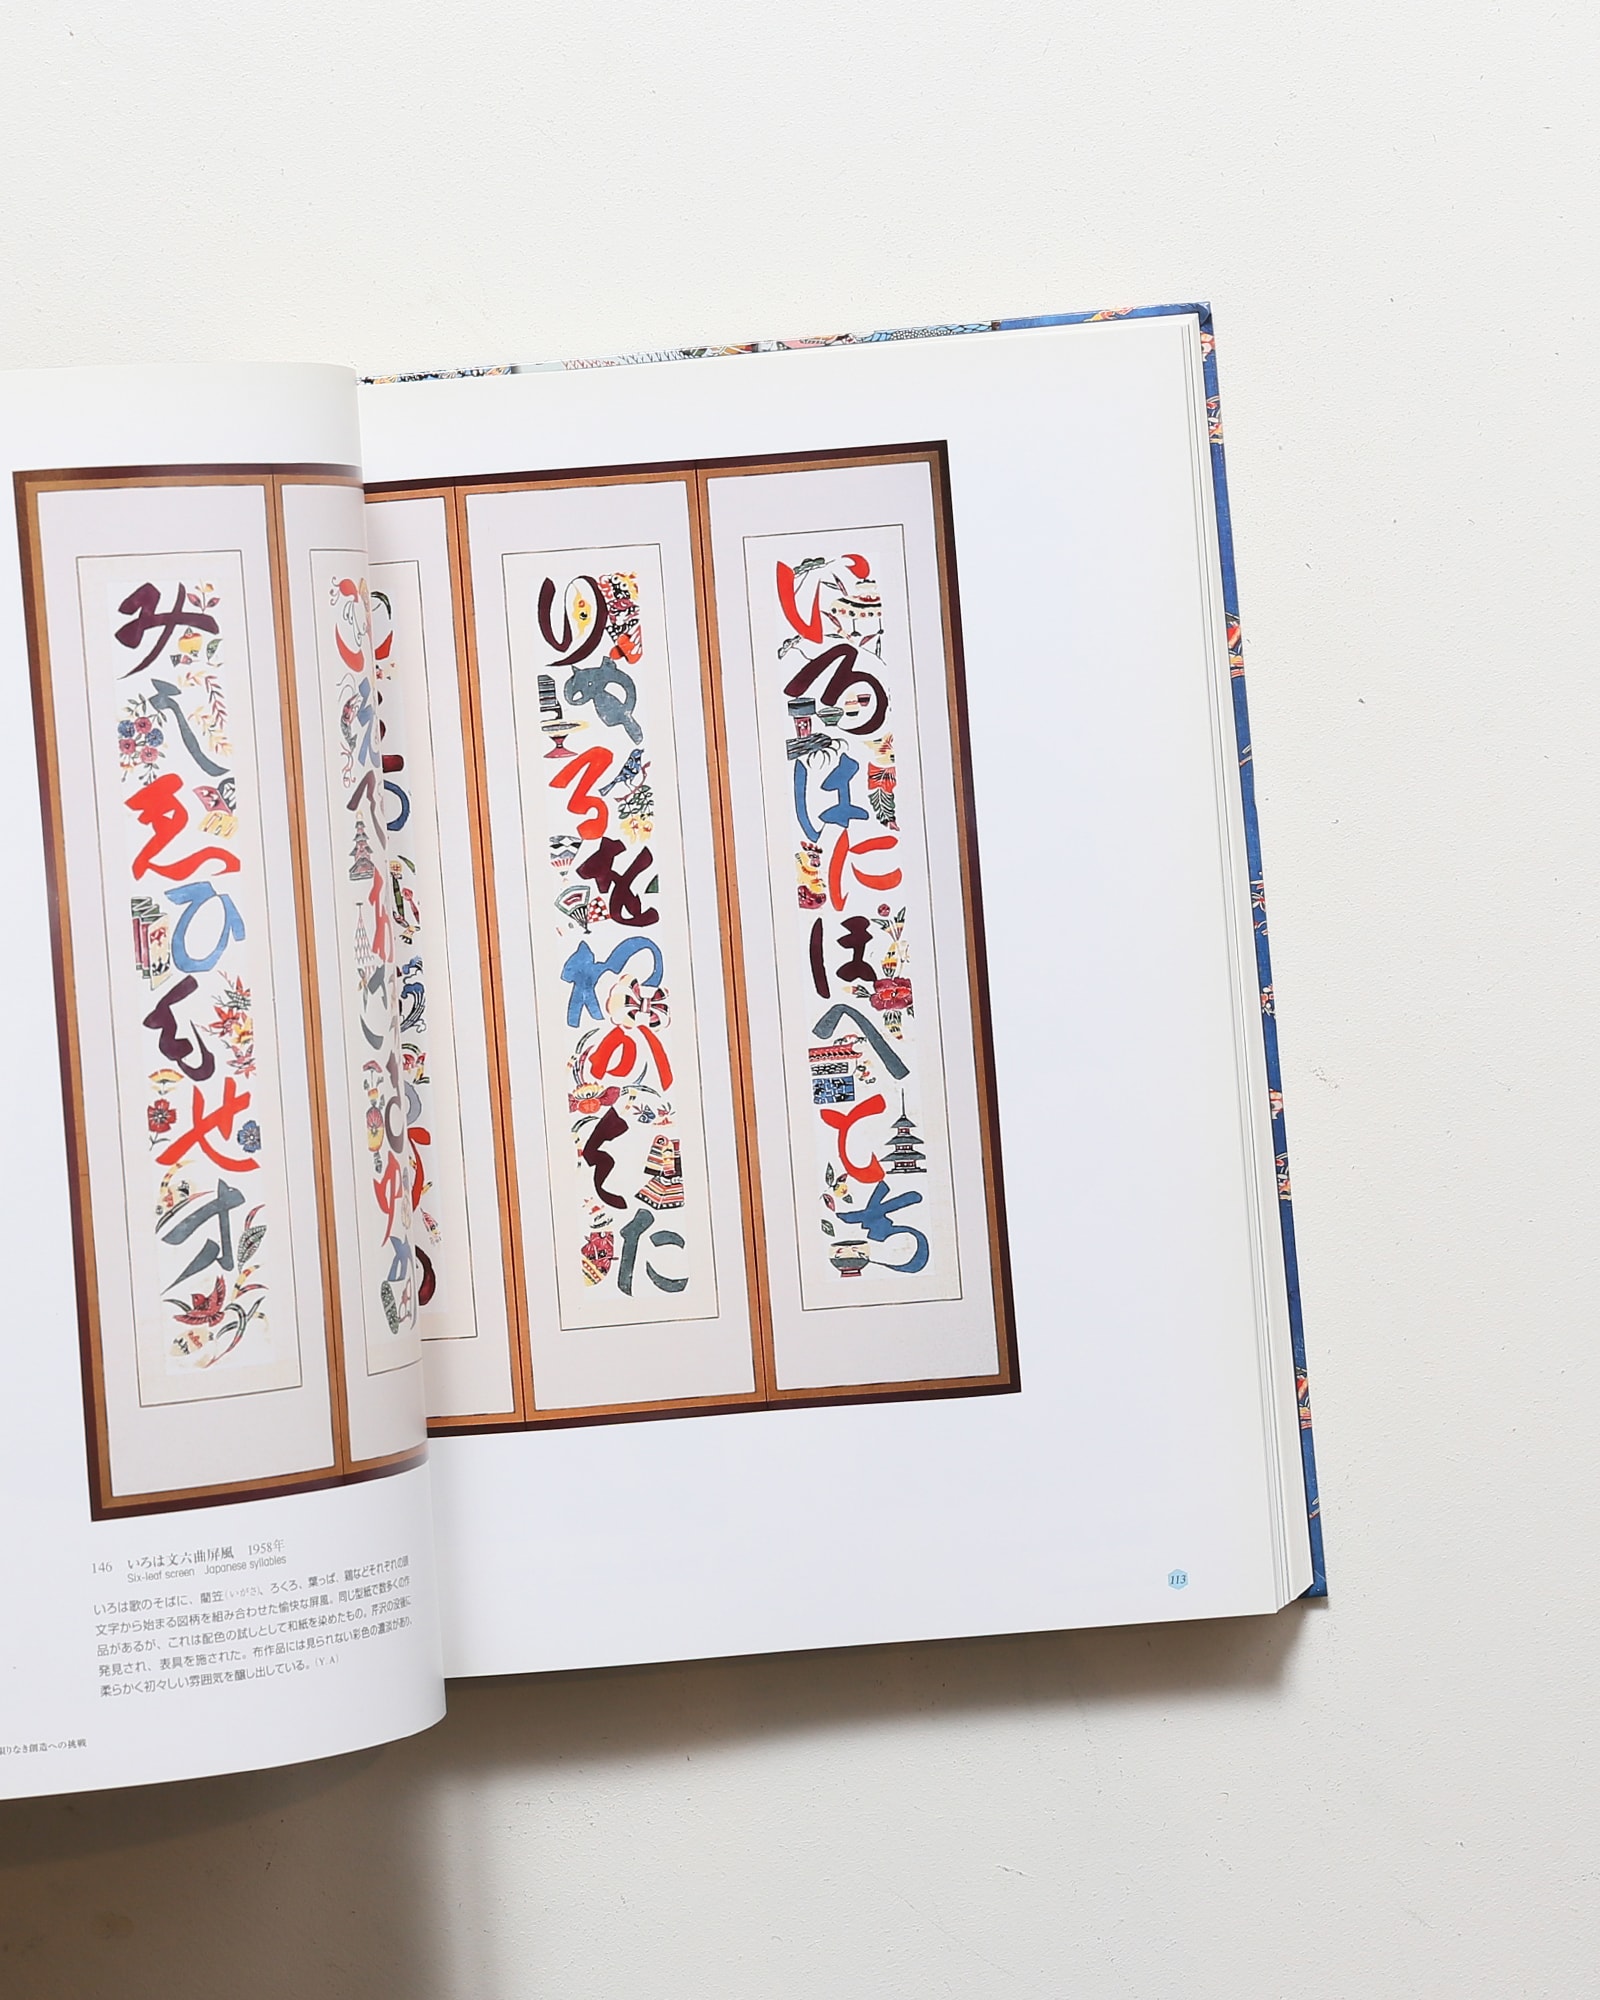 いろはにほへとち
りぬるをわかよた
こえてあさきゆめ
みしゑひもせす
146 いろは文六曲屏風 1958年
Six-leaf screen Japanese syllables
いろは歌のそばに、藺笠(いがさ)、ろくろ、葉っぱ、鶏などそれぞれの頭
文字から始まる図柄を組み合わせた愉快な屏風。同じ型紙で数多くの作
品があるが、これは配色の試しとして和紙を染めたもの。芹沢の没後に
発見され、表具を施された。布作品には見られない彩色の濃淡があり、
柔らかく初々しい雰囲気を醸し出している。(Y.A)
りなき創造への挑戦
113